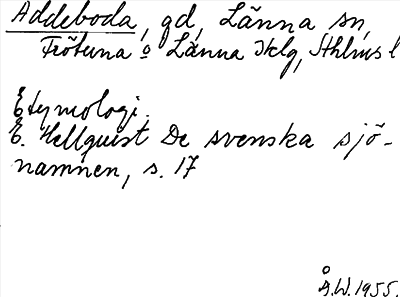 Addeboda, gd, Länna sn,
Frötuna o Länna sklg, Sthlms l
Etymologi.
E. Hellquist De svenska sjö-
namnen, s. 17
Å.W. 1955.